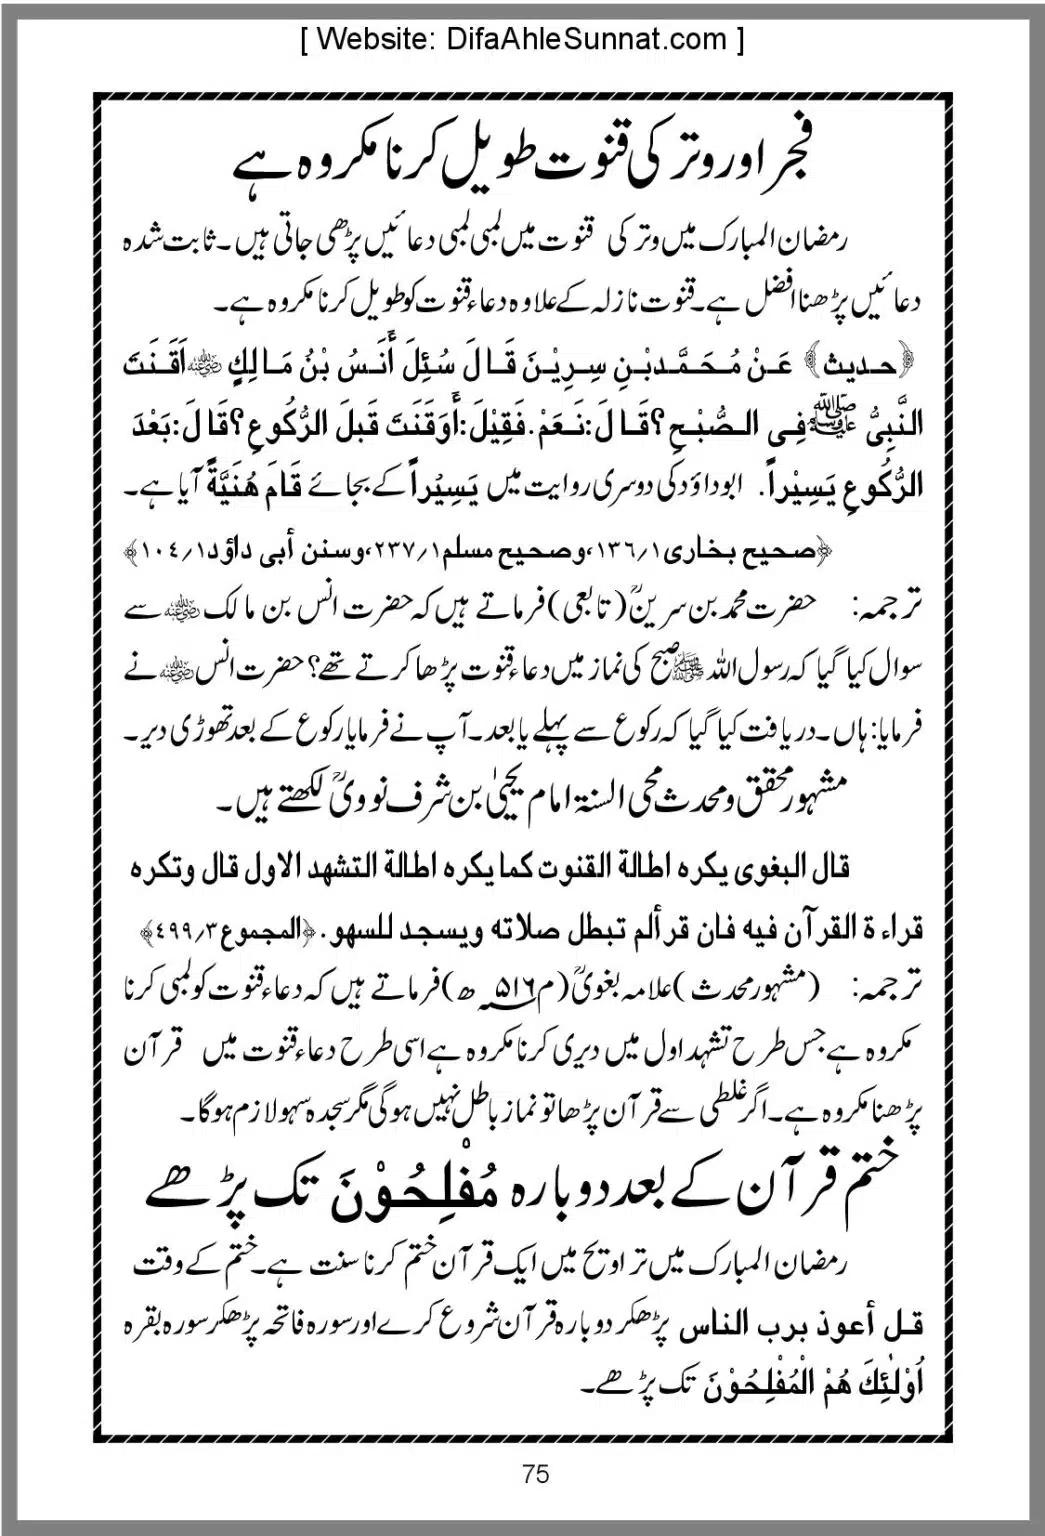 [ Website: DifaAhleSunnat.com ]
فجر اور وتر کی قنوت طویل کرنا مکروہ ہے
رمضان المبارک میں وتر کی قنوت میں لمبی لمبی دعائیں پڑھی جاتی ہیں۔ ثابت شدہ
دعائیں پڑھنا افضل ہے۔ قنوت نازلہ کے علاوہ دعاء قنوت کو طویل کرنا مکروہ ہے۔
﴿حدیث﴾ عَنْ مُحَمَّدبْنِ سِرِیْنَ قَالَ سُئِلَ أَنَسُ بْنُ مَالِكٍ رضی اللہ عنہ اَقَنَتَ
النَّبِیُّ ﷺ فِی الصُّبْحِ؟قَالَ:نَعَمْ.فَقِیْلَ:أَوَقَنَتَ قَبلَ الرُّكُوعِ؟قَالَ:بَعْدَ
الرُّكُوعِ یَسِیْراً. ابوداؤد کی دوسری روایت میں یَسِیْراً کے بجائے قَامَ هُنَیَّةً آیا ہے۔
﴿صحیح بخاری۱؍۱۳۶،وصحیح مسلم۱؍۲۳۷،وسنن أبی داؤد۱؍۱۰۴﴾
ترجمہ: حضرت محمد بن سرینؒ (تابعی) فرماتے ہیں کہ حضرت انس بن مالک رضی اللہ عنہ سے
سوال کیا گیا کہ رسول اللہ ﷺ صبح کی نماز میں دعاء قنوت پڑھا کرتے تھے؟ حضرت انس رضی اللہ عنہ نے
فرمایا: ہاں۔ دریافت کیا گیا کہ رکوع سے پہلے یا بعد۔ آپ نے فرمایا رکوع کے بعد تھوڑی دیر۔
مشہور محقق و محدث محی السنۃ امام یحییٰ بن شرف نوویؒ لکھتے ہیں۔
قال البغوی یکره اطالة القنوت کما یکره اطالة التشهد الاول قال وتکره
قراءة القرآن فیه فان قرألم تبطل صلاته ویسجد للسهو.﴿المجموع۳؍۴۹۹﴾
ترجمہ: (مشہور محدث) علامہ بغویؒ (م۵۱۶ھ) فرماتے ہیں کہ دعاء قنوت کو لمبی کرنا
مکروہ ہے جس طرح تشہد اول میں دیری کرنا مکروہ ہے اسی طرح دعاء قنوت میں قرآن
پڑھنا مکروہ ہے۔ اگر غلطی سے قرآن پڑھا تو نماز باطل نہیں ہوگی مگر سجدہ سہو لازم ہوگا۔
ختم قرآن کے بعد دوبارہ مُفْلِحُوْنَ تک پڑھے
رمضان المبارک میں تراویح میں ایک قرآن ختم کرنا سنت ہے۔ ختم کے وقت
قل أعوذ برب الناس پڑھکر دوبارہ قرآن شروع کرے اور سورہ فاتحہ پڑھکر سورہ بقرہ
اُوْلٰئِكَ هُمْ الْمُفْلِحُوْنَ تک پڑھے۔
75